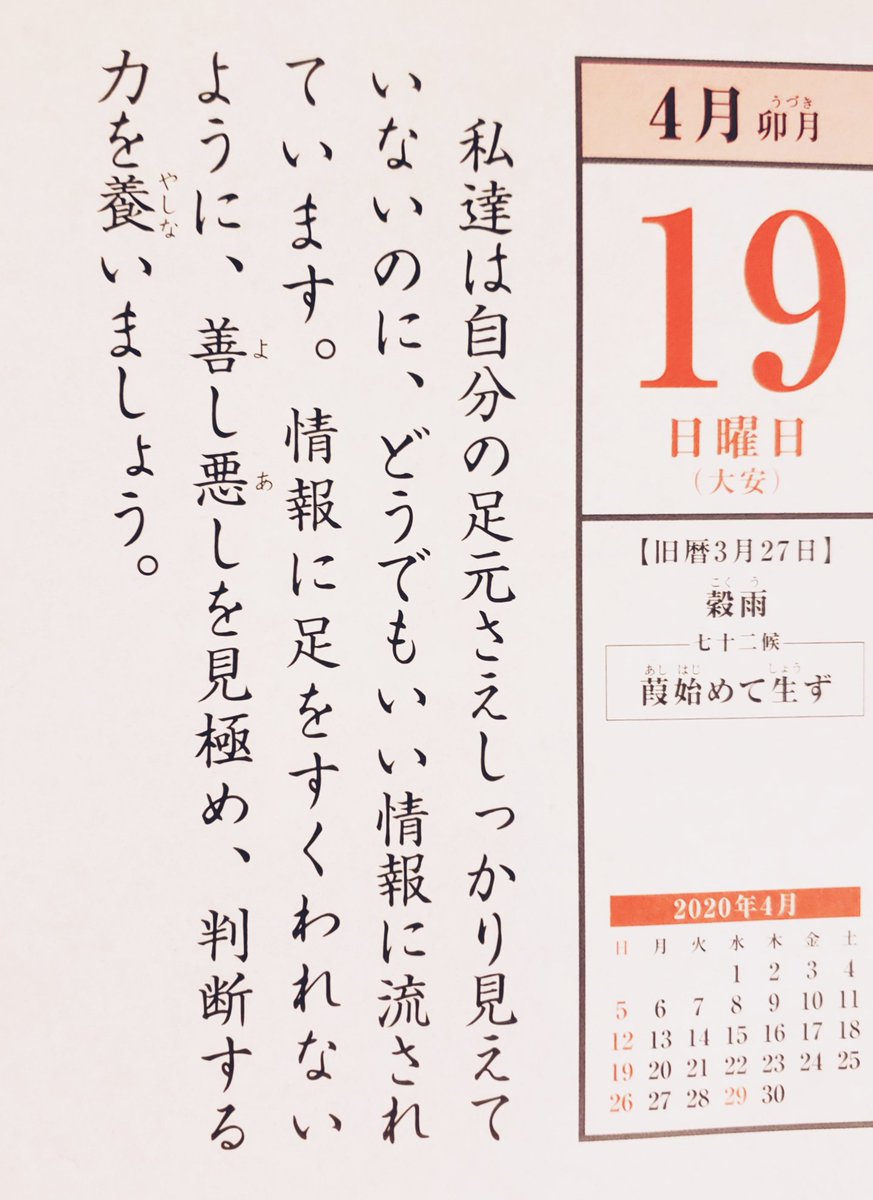 4月 卯月
うづき
19
日曜日
(大安)
【旧暦3月27日】
こくう
穀雨
七十二候
あしはじ しょう
葭始めて生ず
2020年4月
日 月 火 水 木 金 土
1 2 3 4
5 6 7 8 9 10 11
12 13 14 15 16 17 18
19 20 21 22 23 24 25
26 27 28 29 30
私達は自分の足元さえしっかり見えて
いないのに、どうでもいい情報に流され
ています。情報に足をすくわれない
ように、善し悪しを見極め、判断する
よ あ
力を養いましょう。
やしな